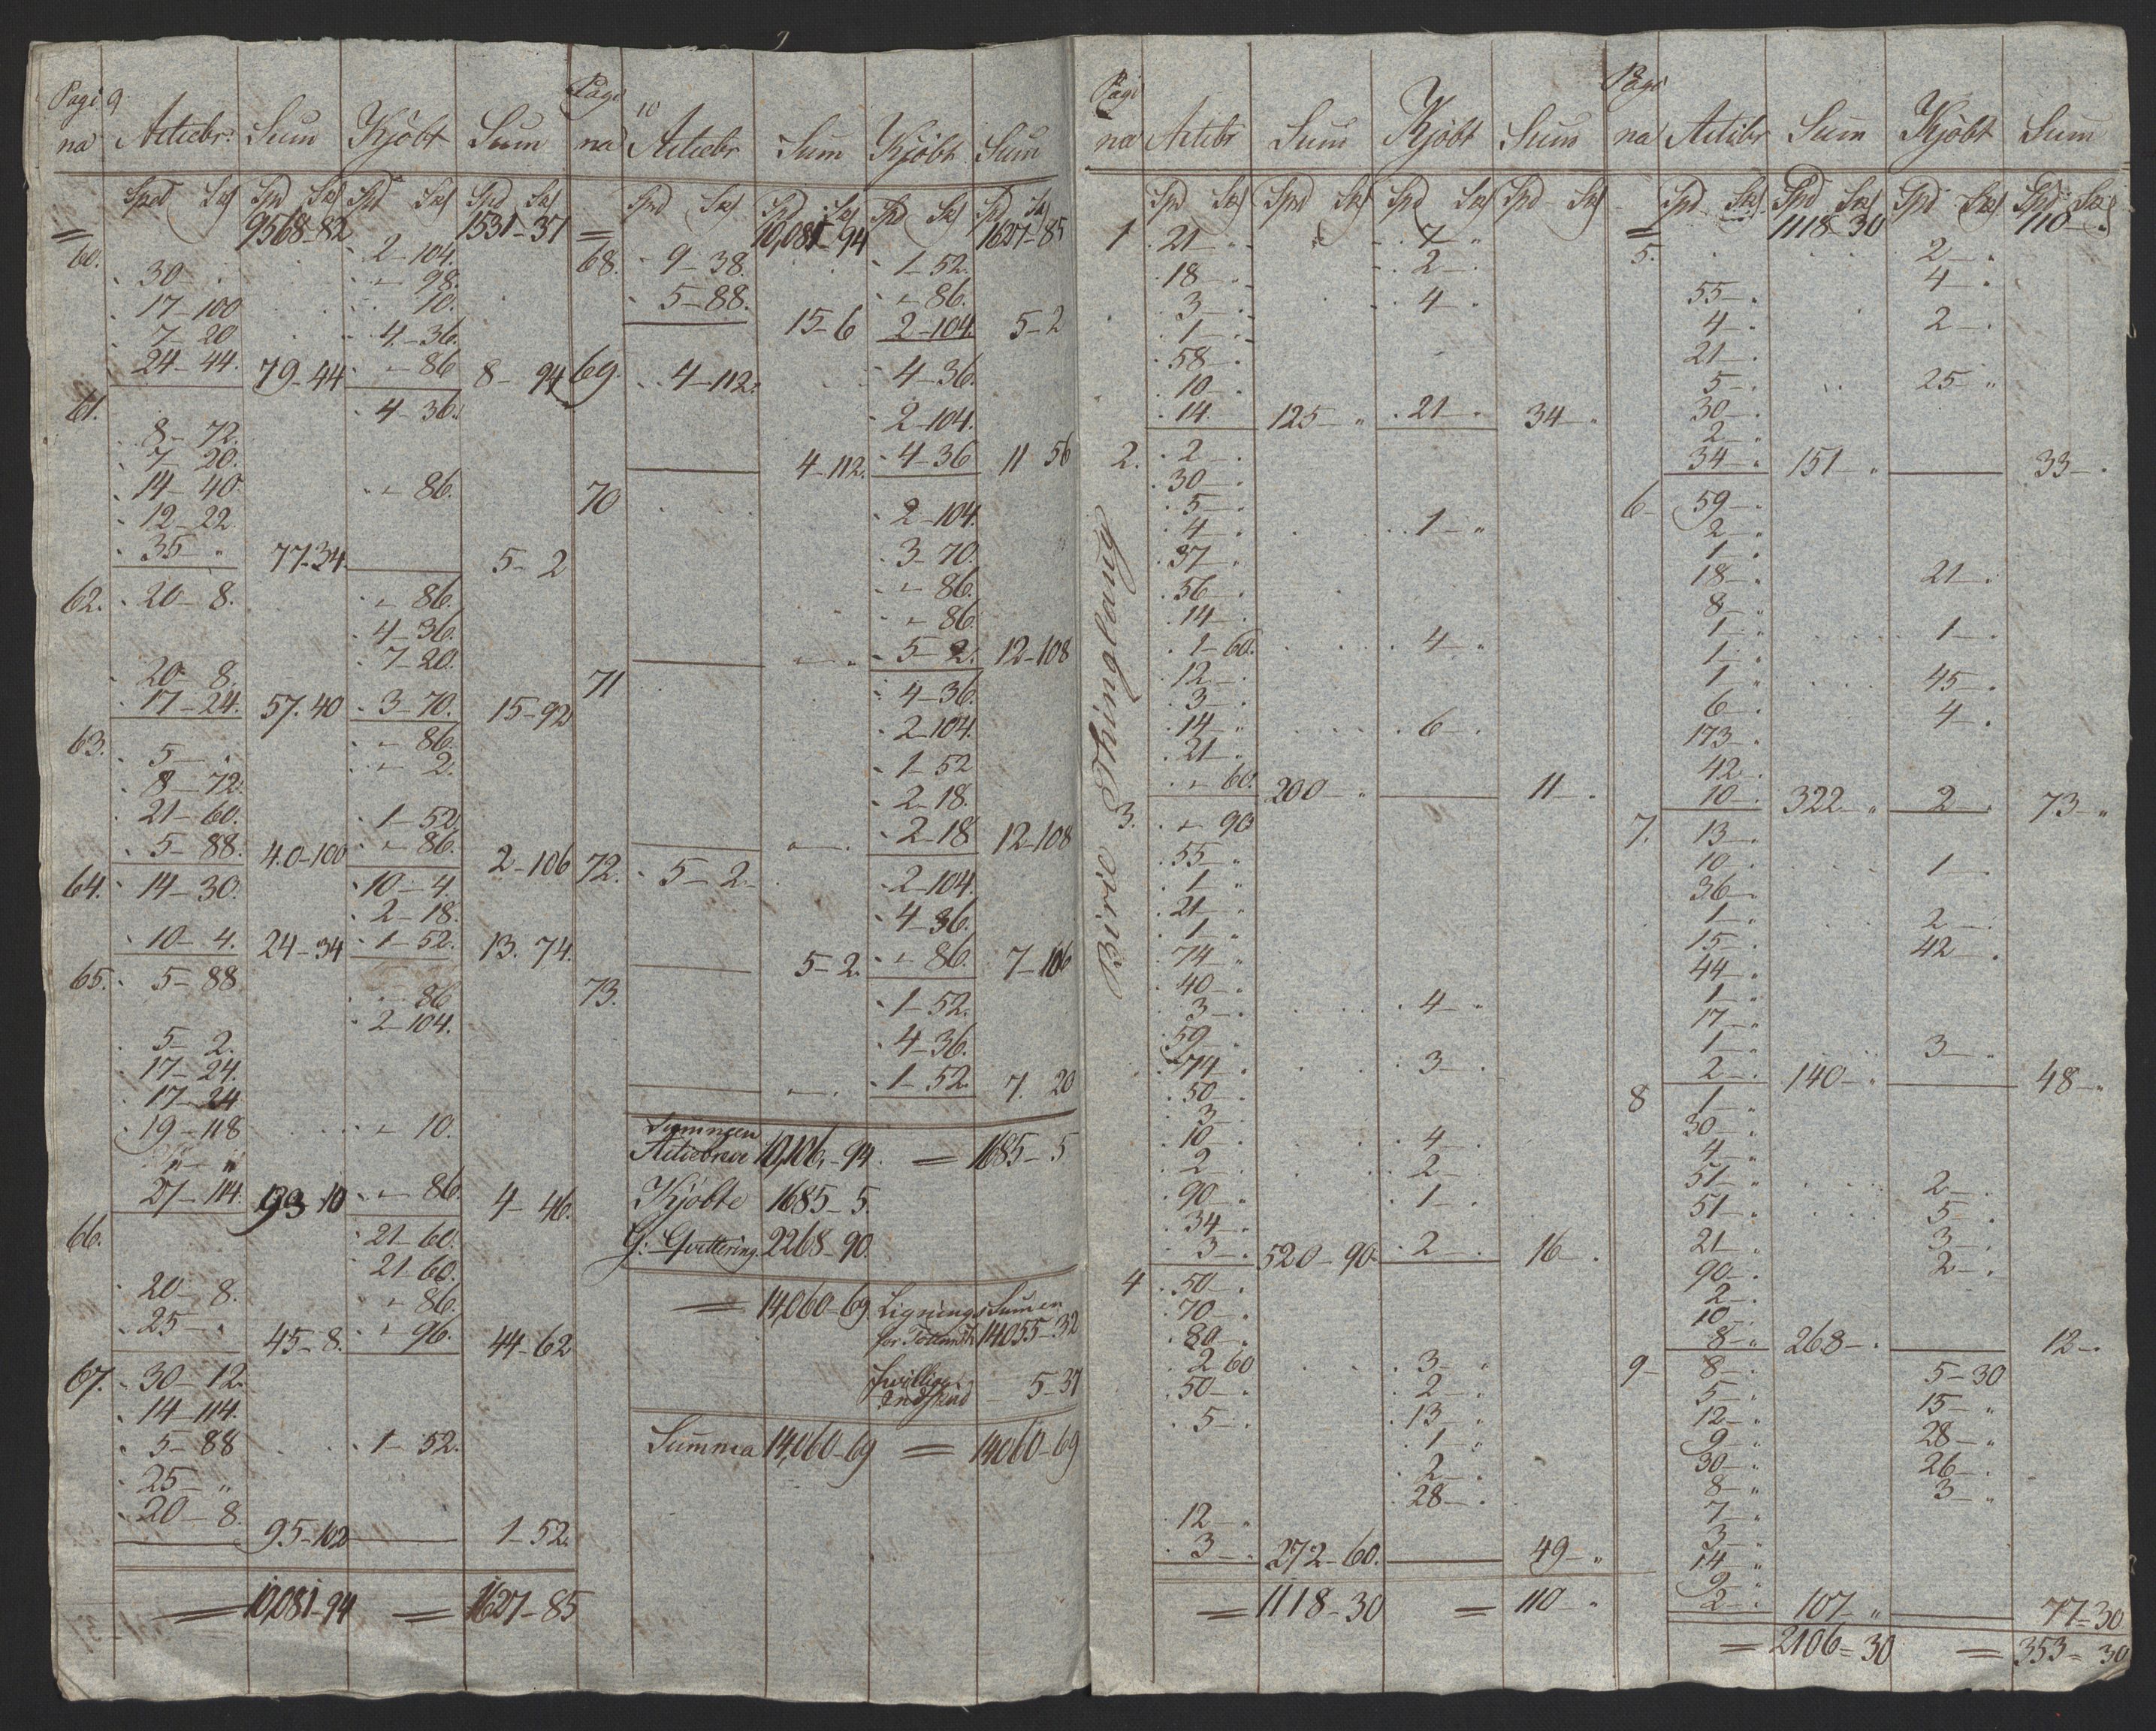 Pagi 9
na Actiebr: Sum Kjöbt Sum
Spd Sk Spd Sk Spd Sk Spd Sk
= 9568-82 1531-37
60. 2-104.
30- . " 98.
17-100 10.
7-20 4-36.
24-44. 79-44 " 86 8-94
61. 4-36.
8-72.
7-20.
14-40. " 86.
12-22
35- " 77-34. 5-2
62. 20-8. " 86.
4-36.
7-20.
20-8.
17-24. 57.40 3-70. 15-92
63. " 86.
5- " " 2.
8-72.
21-60. 1-52
5-88. 40-100 " 86. 2-106
64. 14-30. 10-4.
2-18.
10-4. 24-34 1-52. 13.74.
65. 5-88.
86
2-104.
5-2.
17-24.
17-24
19-118 " 10.
" - "
27-114. 93 10 " 86. 4-46.
66. 21-60.
21-60.
20-8. " 86.
25- . 45-8. " 96. 44-62
67. 30-12.
14-114.
5-88 1-52.
25- "
20-8. 95-102 1-52.
= 10,081-94 = 1627-85
Pagi 10
na Actiebr Sum Kjöbt Sum
Spd Sk Spd Sk Spd Sk Spd Sk
= 10,081-94 1627-85
68. 9-38. 1-52.
5-88. " 86.
15-6 2-104. 5-2
69. 4-112. 4-36.
2-104.
4-112. 4-36 11 56
70 2-104.
3-70.
" 86.
" 86.
" . 5-2. 12-108
71 4-36.
2-104.
1-52
2-18.
" . 2-18 12-108
72. 5-2. 2-104.
4-36.
5-2. " 86. 7-106
73. 1-52.
4-36.
" . 1-52. 7. 20
Summen
Actiebreve 10,106,-94. = 1685-5
Kjöbte 1685-5.
G: Qvittering. 2268-90.
= 14,060-69 Lignings Sumen
for 14055-32
frivillige
Indskud 5-37
Summa 14,060-69 = 14060-69
Biri o: Thinglaug
Pagi
na Actibr Sum Kjöbt Sum
Spd Sk Spd Sk Spd Sk Spd Sk
1 21- " 7- "
18- . 2- .
3- . 4- "
1- .
58- .
10- .
14. 125- " 21- . 34- "
2. 2- .
30- .
5- "
4- . 1- "
37- .
56- .
14- .
1-60. 4- "
12- .
3- .
14- " 6- .
21- .
" 60. 200- " 11- .
3. " 90
55- "
1- "
21- "
1- "
74- "
40- .
3- . 4- "
59- "
74- . 3- .
50- .
3- .
10- . 4- .
2- . 2- .
90- . 1- "
34- .
3- . 520-90. 2- . 16- .
4 50- .
70- .
80- .
2 60 3- "
50- . 2- .
5- . 13- "
1- "
2- .
28- .
12- .
3- . 272-60. 49- "
= 1118-30 = 110- .
Pagi
na Actibr Sum Kjöbt Sum
Spd Sk Spd Sk Spd Sk Spd Sk
= 1118-30 110- .
5. 2- .
55- . 4- .
4- . 2- .
21- .
5- . 25- "
30- .
2- "
34- . 151- " 33- .
6 59- .
2- "
1- "
18- . 21- .
8- "
1- . 1- .
1- "
1- . 45- .
6- . 4- .
173- .
42- .
10- . 322- " 2- . 73- "
7. 13- .
10- . 1- .
36- .
1- . 2- .
15- . 42- .
44- .
1- "
17- "
1- . 3- .
2- . 140- " 48- "
8 1- "
30- .
4- "
51- . 2- .
51- . 5- .
21- . 3- .
90- . 2- .
2- .
10- .
8- " 268- . 12- .
9- 8- . 5-30
5- . 15- "
12- . 28- "
9- " 26- .
30- . 3- "
8- "
7- "
3- "
14- "
9- "
2- . 107- " 77-30
= 2106=30 = 353=30